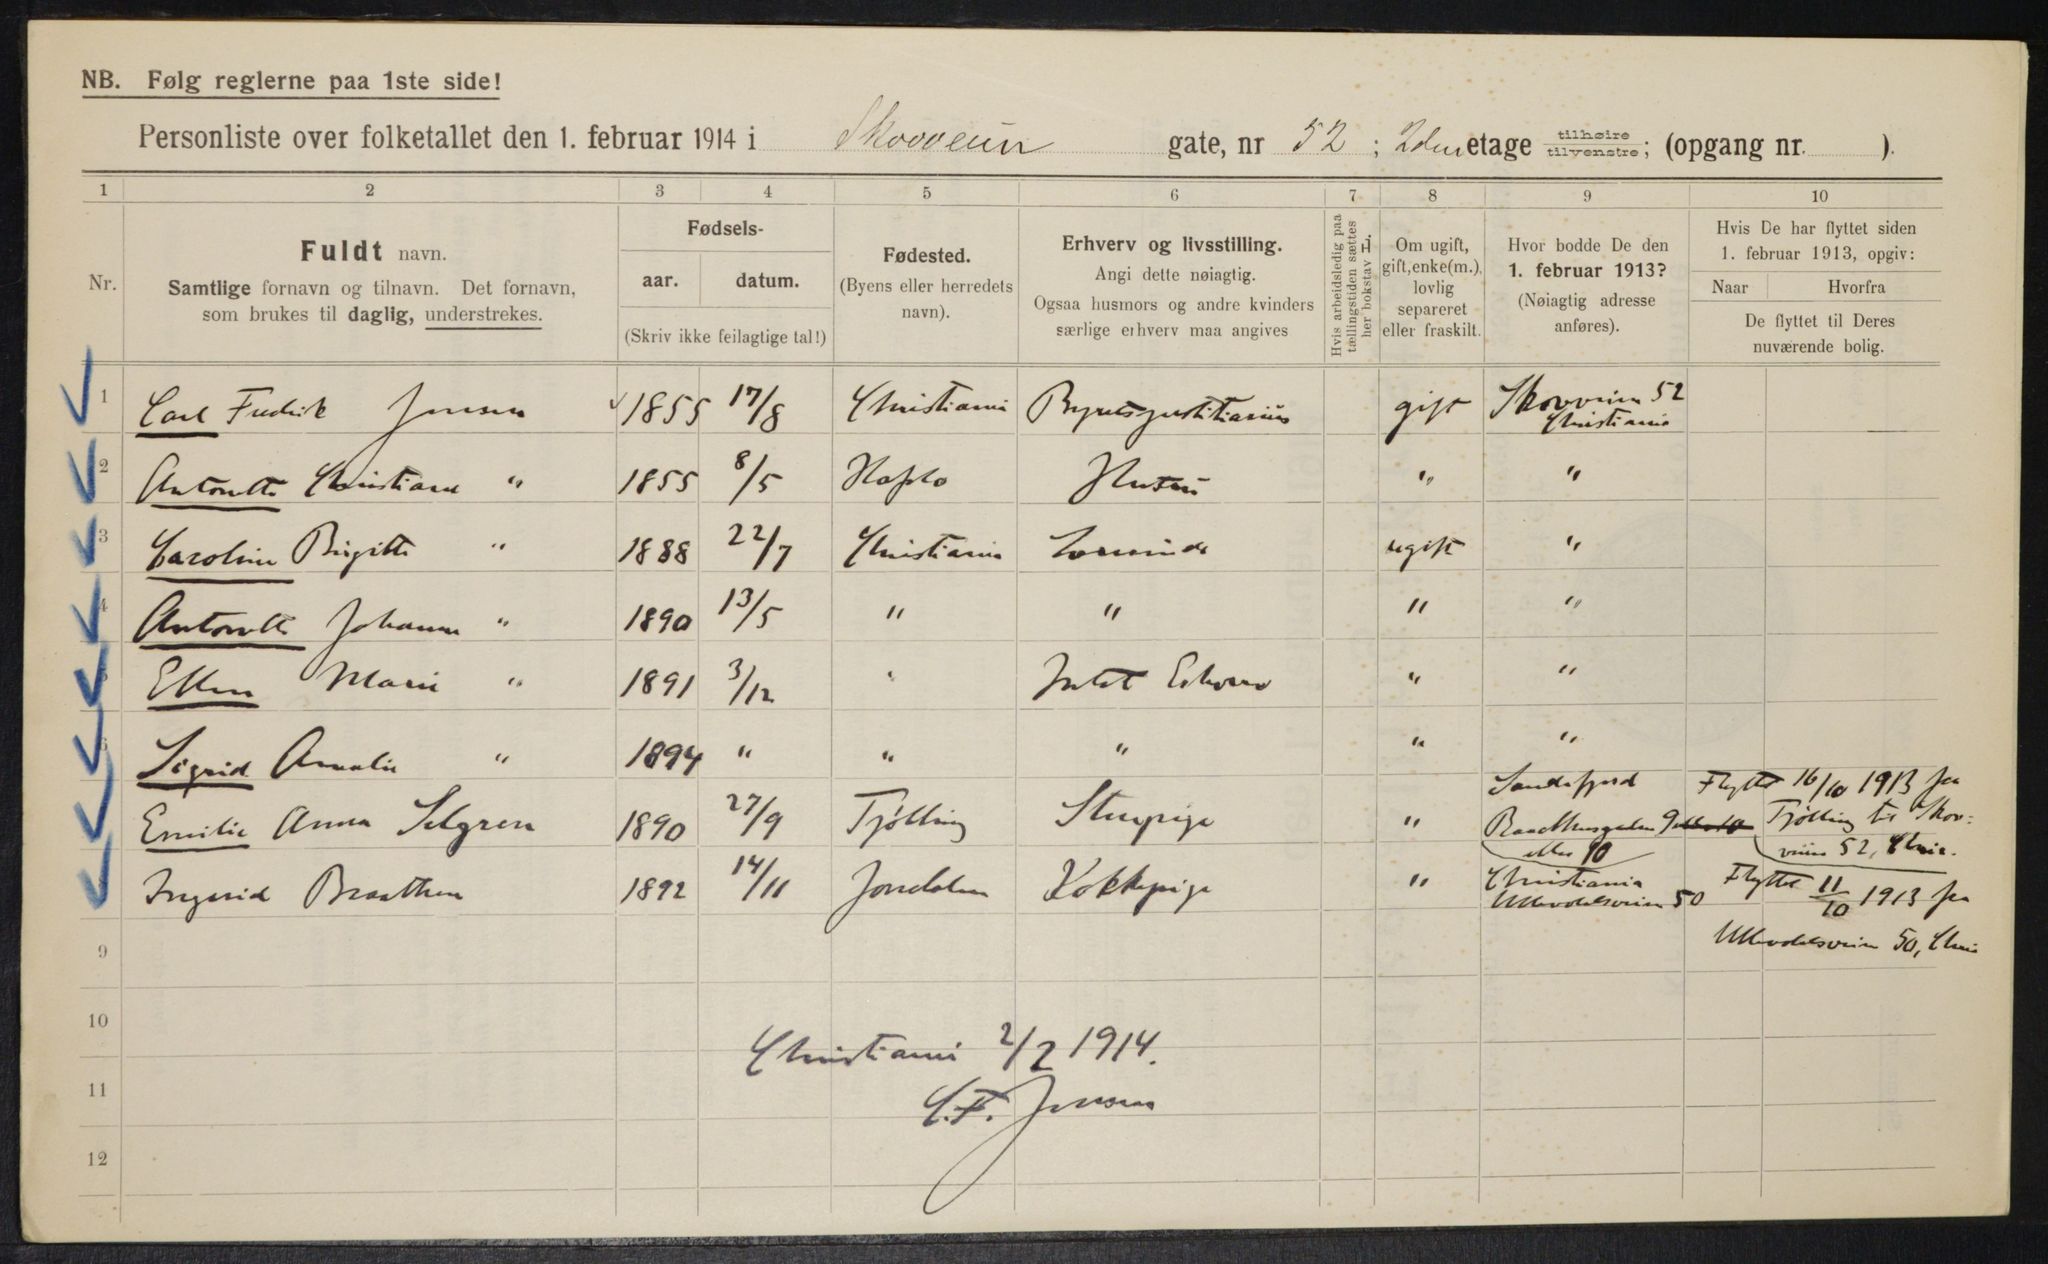 NB. Følg reglerne paa 1ste side!
Personliste over folketallet den 1. februar 1914 i Skovveien gate, nr 52; 2den etage tilhøire tilvenstre; (opgang nr. ).
1 2 3 4 5 6 7 8 9 10
Nr.
Fuldt navn.
Samtlige fornavn og tilnavn. Det fornavn,
som brukes til daglig, understrekes.
Fødsels-
aar. datum.
(Skriv ikke feilagtige tal!)
Fødested.
(Byens eller herredets
navn).
Erhverv og livsstilling.
Angi dette nøiagtig.
Ogsaa husmors og andre kvinders
særlige erhverv maa angives
Hvis arbeidsledig paa
tællingstiden sættes
her bokstav L.
Om ugift,
gift, enke(m.),
lovlig
separeret
eller fraskilt.
Hvor bodde De den
1. februar 1913?
(Nøiagtig adresse
anføres).
Hvis De har flyttet siden
1. februar 1913, opgiv:
Naar Hvorfra
De flyttet til Deres
nuværende bolig.
1 Carl Fredrik Jensen 1855 17/8 Christiania Byretsjustitiarius gift Skovveien 52
Christiania
2 Antonette Christiane " 1855 8/5 Hafslo Hustru " "
3 Caroline Birgitte " 1888 22/7 Christiania ugift "
4 Antonette Johanne " 1890 13/5 " " " "
5 Ellen Marie " 1891 3/12 " Intet Erhverv " "
6 Sigrid Amalie " 1894 " " " " "
Emilie Anna Selgren 1890 27/9 Tjølling Stuepige " Sandefjord
Raadhusgaden 9
eller 10
Flyttet 16/10 1913 fra
Tjølling til Skov-
veien 52, Chria.
Ingrid Braathen 1892 14/11 Jondalen Kokkepige " Christiania
Ullevoldsveien 50
Flyttet 11/10 1913 fra
Ullevoldsveien 50, Chria
9
10
11
12
Christiania 2/2 1914.
C. F. Jensen